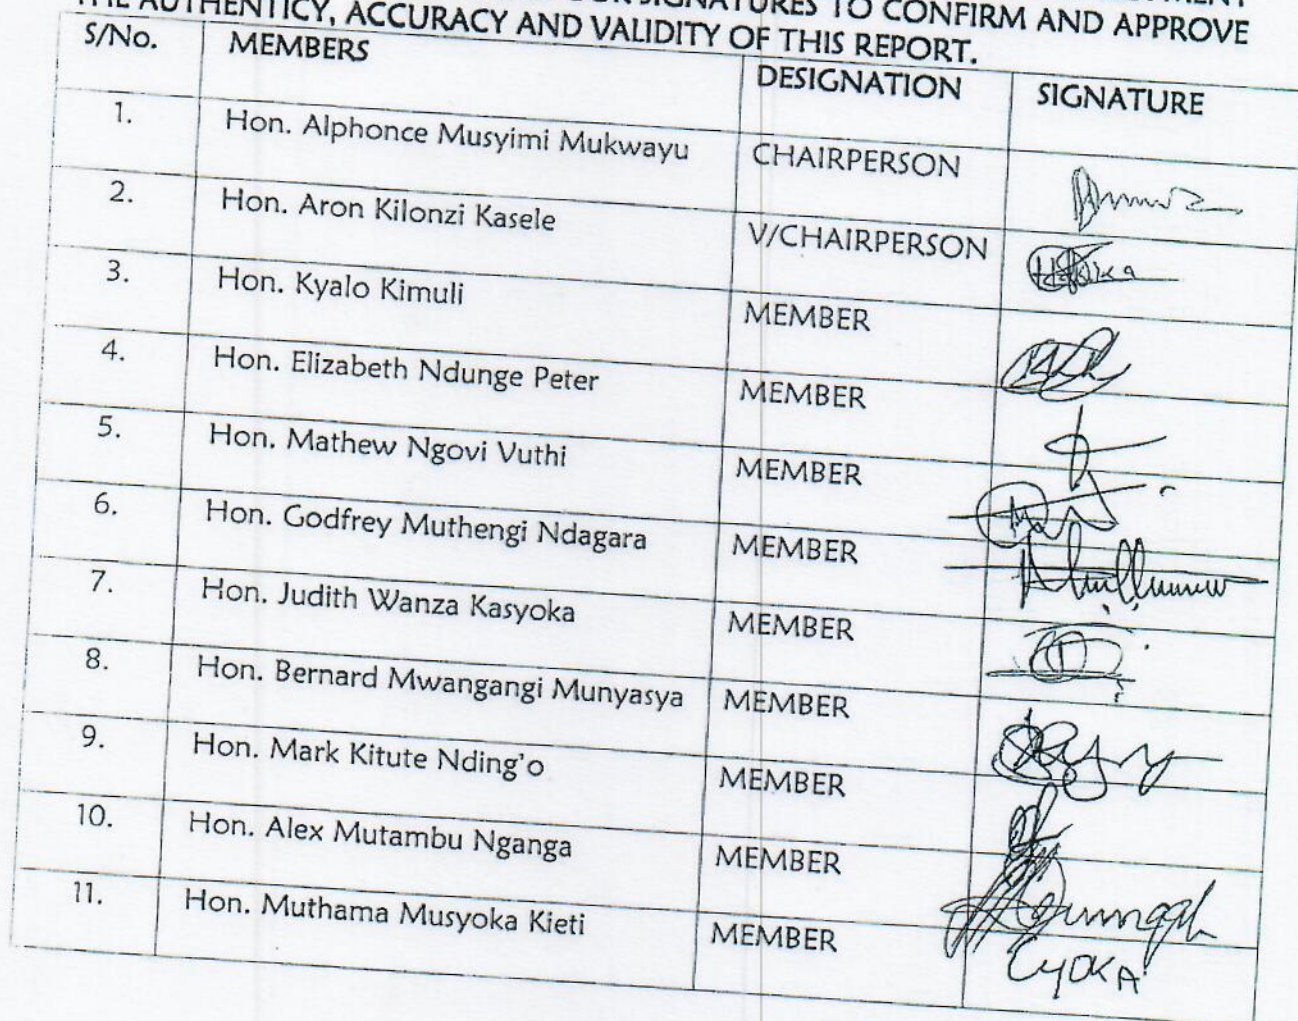 SIGNATURES TO CONFIRM AND APPROVE
THE AUTHENTICY, ACCURACY AND VALIDITY OF THIS REPORT.
S/No. MEMBERS DESIGNATION SIGNATURE
1. Hon. Alphonce Musyimi Mukwayu CHAIRPERSON
2. Hon. Aron Kilonzi Kasele V/CHAIRPERSON
3. Hon. Kyalo Kimuli MEMBER
4. Hon. Elizabeth Ndunge Peter MEMBER
5. Hon. Mathew Ngovi Vuthi MEMBER
6. Hon. Godfrey Muthengi Ndagara MEMBER
7. Hon. Judith Wanza Kasyoka MEMBER
8. Hon. Bernard Mwangangi Munyasya MEMBER
9. Hon. Mark Kitute Nding'o MEMBER
10. Hon. Alex Mutambu Nganga MEMBER
11. Hon. Muthama Musyoka Kieti MEMBER